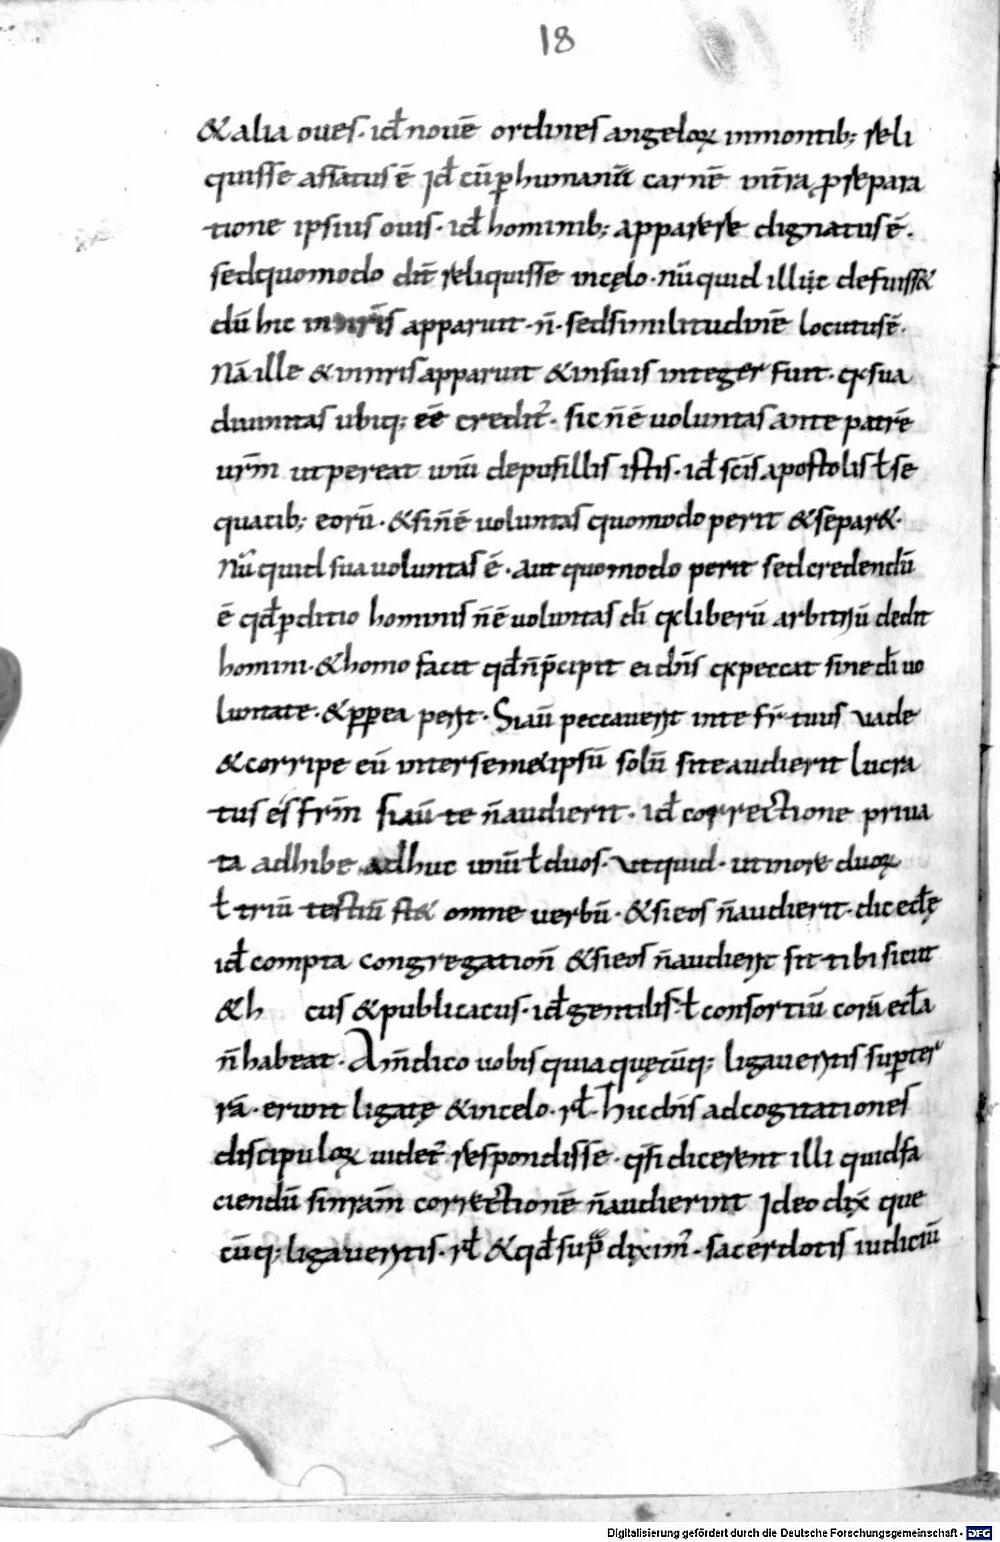 18
& alia oues · id̄ nouē ordines angeloꝝ inmontib; reli
quisse affatus ē Id̄ cū ꝑ humanū carnē nr̄ā p̄repara
tione ipsius ouis · id̄ hominib; apparere dignatus ē ·
sed quomodo dn̄s reliquisse incęlo · nū quid illuc defuiss&
dū hic in nr̄is apparuit · n̄ · sed similitudinē locutus ē ·
Nā ille & innr̄is apparuit & insuis integer fuit · q̄ sua
diuinitas ubiq; eē credit̄ · sic n̄ ē uoluntas ante patrē
ur̄m ut pereat unū de pusillis istis · id̄ sc̄is apostolis ł se
quacib; eorū · & si n̄ ē uoluntas quomodo perit & separ& ·
Nū quid sua uoluntas ē · aut quomodo perit sed credendū
ē qd̄ ꝑditio hominis n̄ ē uoluntas dī q̄ liberū arbitriū dedit
homini · & homo facit qd̄ n̄ p̄cipit ei dn̄s q̄ peccat sine dī uo
luntate · & ꝓpea perit · Si aū peccauerit inte fr̄ tuus uade
& corripe eū inter sem&ipsū solū si te audierit lucra
tus es fr̄m si aū te n̄ audierit · id̄ correctione priua
ta adhibe adhuc unū ł duos · utquid · ut inore duoꝝ
ł triū testiū st& omne uerbū · & si eos n̄ audierit · dic ecl̄ę
id̄ compta congregation̄ & si eos n̄ audierit sit tibi sicut
& h cus & publicacus · id̄ gentilis · ł consortiū corā ecl̄a
n̄ habeat · Am̄ dico uobis quia quęcūq; ligaueritis suꝑ ter
rā · erunt ligatę & incelo · rl̄ · Hic dn̄s ad cogitationes
discipuloꝝ uidet̄ respondisse · q̄si dicerent illi quid fa
ciendū si nr̄am correctionē n̄ audierint Ideo dix̄ que
cūq; ligaueritis · rl̄ & qd̄ supͣ diximꝰ · sacerdotis iudiciū
Digitalisierung gefördert durch die Deutsche Forschungsgemeinschaft - DFG